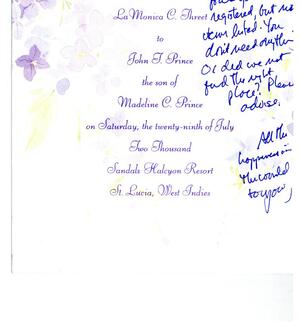 La Monica C. Threet
to
John T. Prince
the son of
Madeline C. Prince
on Saturday, the twenty-ninth of July
Two Thousand
Sandals Halcyon Resort
St. Lucia, West Indies
registered, but no
items listed. You
don't need anythin
Or did we not
find the right
place? Please
advise.
All the
happiness in
the world
to you,